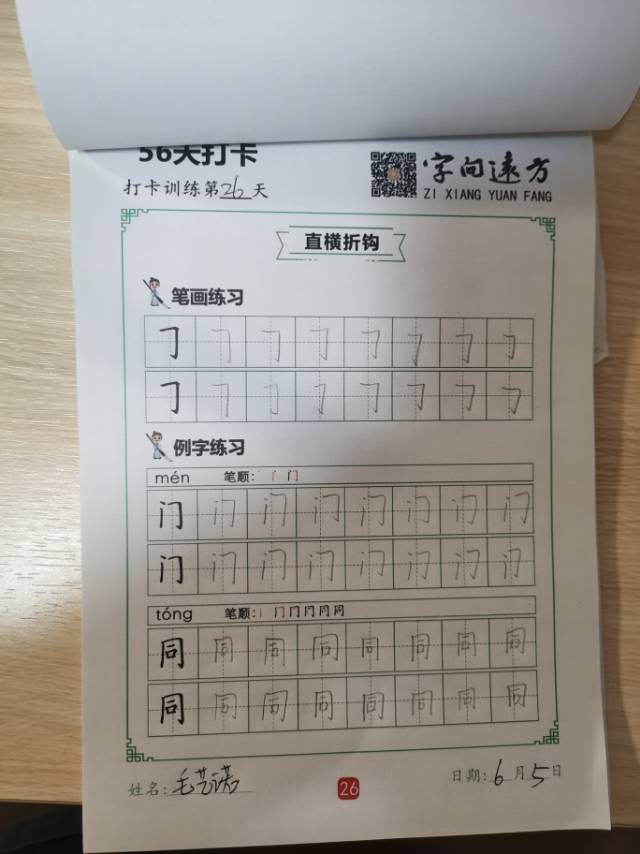 56天打卡
字向远方
打卡训练第26天
ZI XIANG YUAN FANG
直横折钩
笔画练习
㇆ ㇆ ㇆ ㇆ ㇆ ㇆ ㇆ ㇆
㇆ ㇆ ㇆ ㇆ ㇆ ㇆ ㇆ ㇆
例字练习
mén 笔顺：丶 门
门 门 门 门 门 门 门 门
门 门 门 门 门 门 门 门
tóng 笔顺：
同 同 同 同 同 同 同 同
同 同 同 同 同 同 同 同
姓名：毛艺诺 26 日期：6月5日